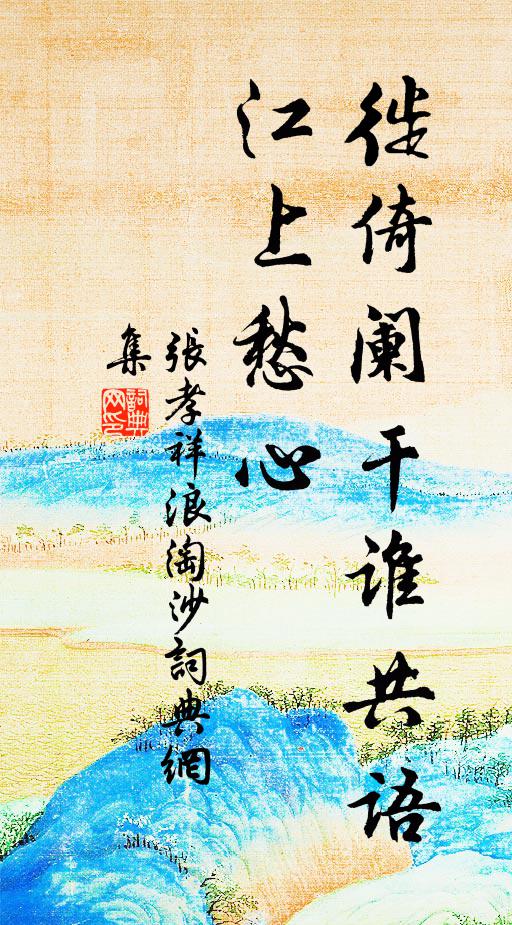 徙倚阑干谁共语
江上愁心
張孝祥浪淘沙詞典網
集
詞典网印